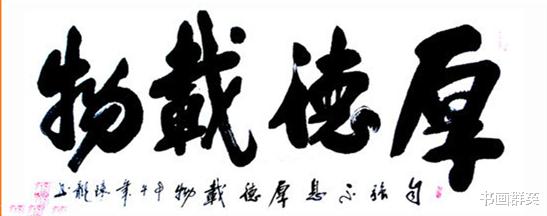 厚德載物
自强不息厚德載物甲午年龍书
书画群葵